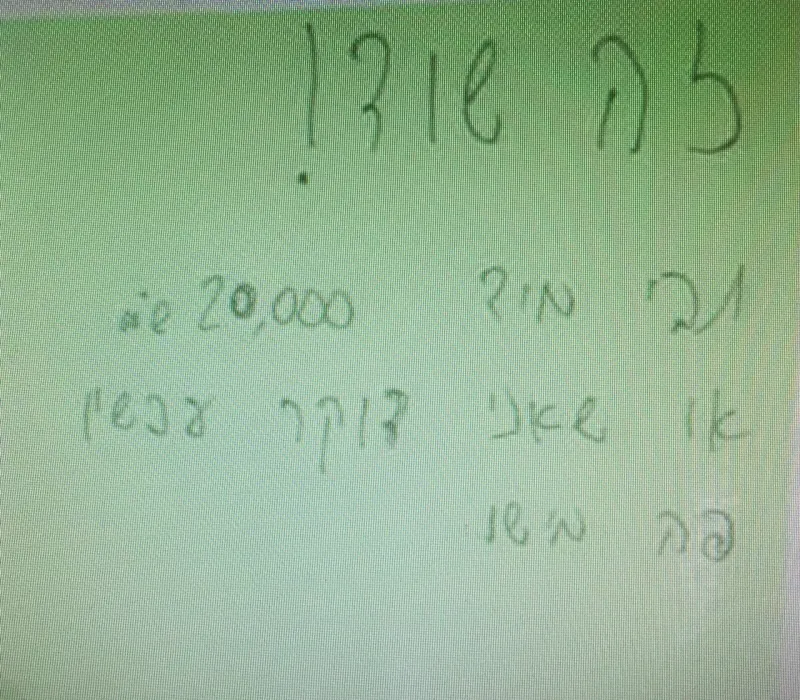 זה שוד!
תבי מיד 20,000 ש"ח
או שאני דוקר עכשיו
פה מישו